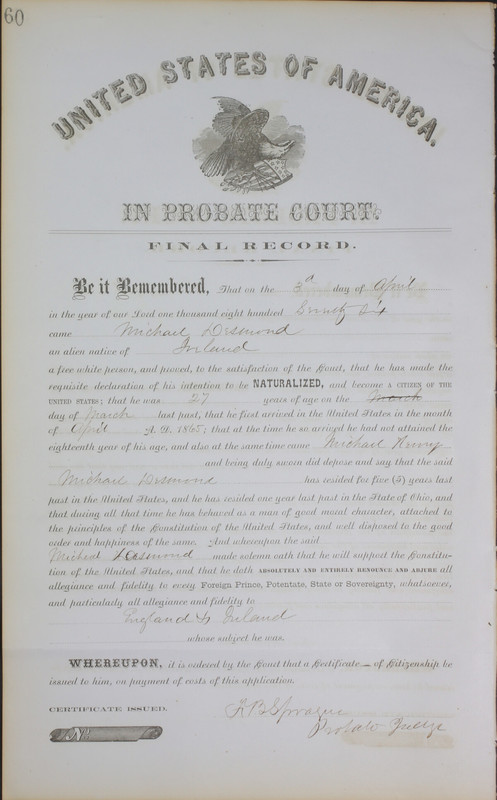 60
UNITED STATES OF AMERICA.
IN PROBATE COURT.
FINAL RECORD.
Be it Remembered, That on the 3d day of April
in the year of our Lord one thousand eight hundred Seventy Six
came Michael Desmond
an alien native of Ireland
a free white person, and proved, to the satisfaction of the Court, that he has made the
requisite declaration of his intention to be NATURALIZED, and become A CITIZEN OF THE
UNITED STATES; that he was 27 years of age on the March
day of March last past, that he first arrived in the United States in the month
of April A. D. 1865; that at the time he so arrived he had not attained the
eighteenth year of his age, and also at the same time came Michael Henry
and being duly sworn did depose and say that the said
Michael Desmond has resided for five (5) years last
past in the United States, and he has resided one year last past in the State of Ohio, and
that during all that time he has behaved as a man of good moral character, attached to
the principles of the Constitution of the United States, and well disposed to the good
order and happiness of the same. And whereupon the said
Micheal Desmond made solemn oath that he will support the Constitu-
tion of the United States, and that he doth ABSOLUTELY AND ENTIRELY RENOUNCE AND ABJURE all
allegiance and fidelity to every Foreign Prince, Potentate, State or Sovereignty, whatsoever,
and particularly all allegiance and fidelity to
England & Ireland
whose subject he was.
WHEREUPON, it is ordered by the Court that a Certificate of Citizenship be
issued to him, on payment of costs of this application.
CERTIFICATE ISSUED.
No.
Sprague
Probate Judge